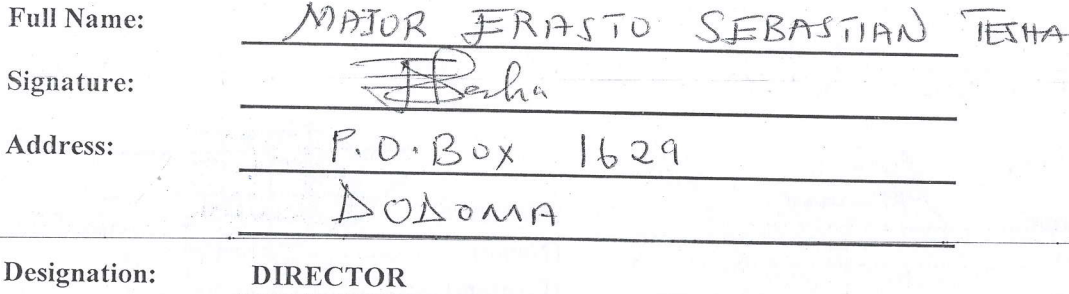 Full Name: MAJOR ERASTO SEBASTIAN TESHA
Signature: Tesha
Address: P.O.BOX 1629
DODOMA
Designation: DIRECTOR